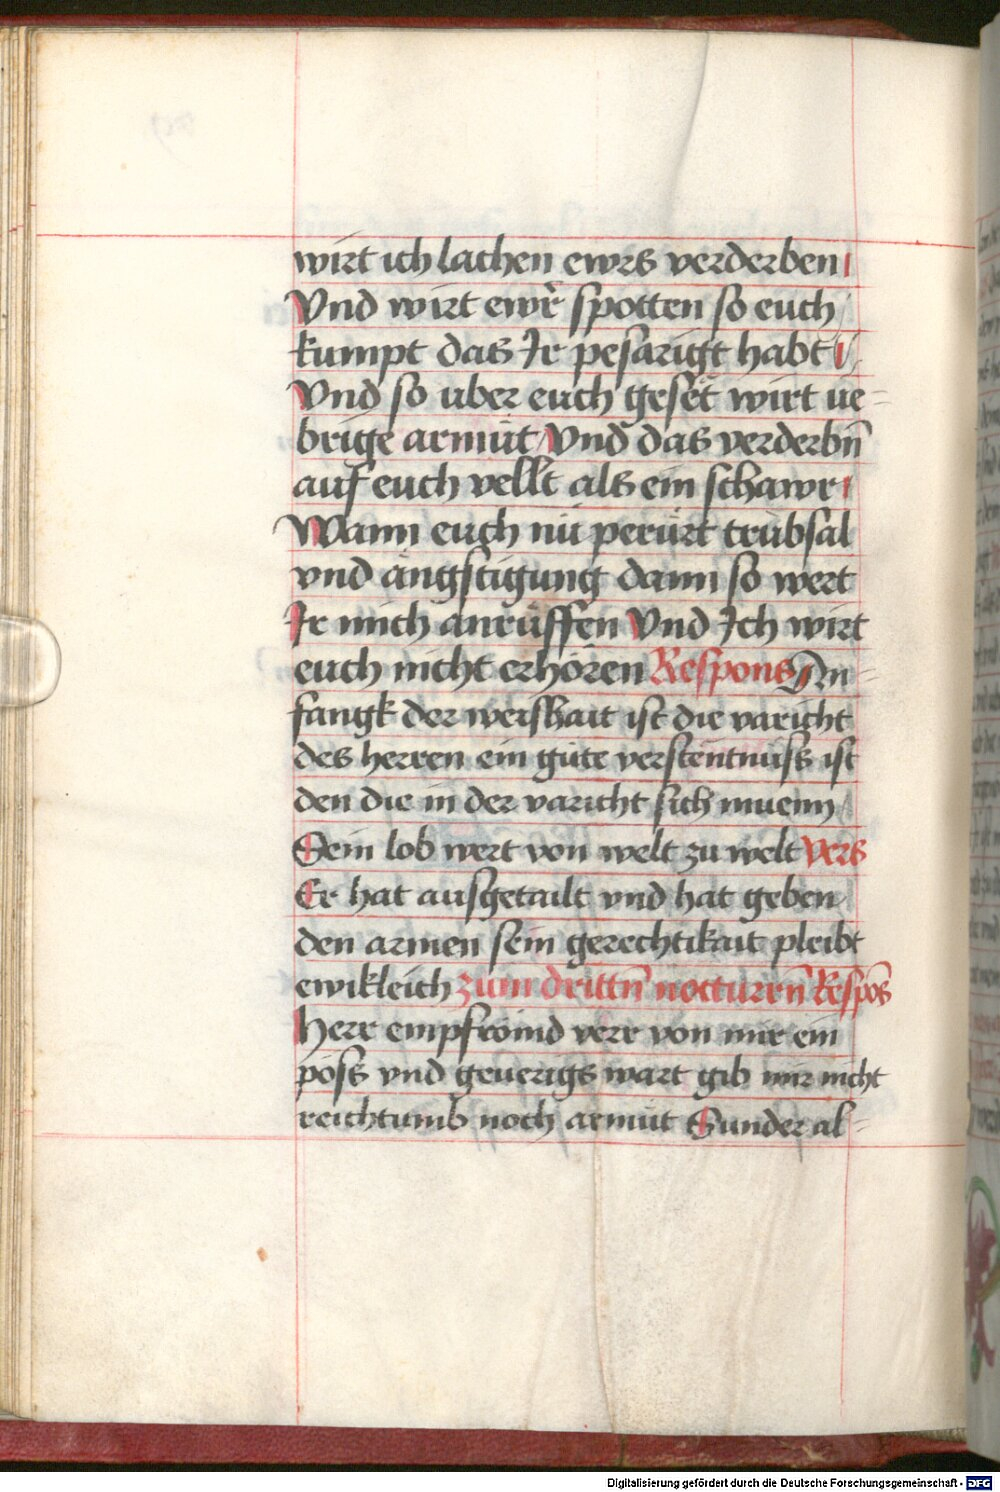 wirt ich lachen ewrs verderben
Vnd wirt ewr̃ spotten so euch
kumpt das Ir pesarigt habt
Vnd so uber euch geset wirt ue=
brige armüt Vnd das verderbn̄
auf euch vellt als ein schawr
Wann euch nü perürt trübsal
vnd ängstigung dann so wert
Ir mich anrüffen Vnd Ich wirt
euch nicht erhören Respons An=
fangk der weishait ist die varicht
des herren ein güte verstentnüss ist
den die in der varicht sich muenn
Sein lob wert von welt zu welt Vers
Er hat ausgetailt vnd hat geben
den armen sein gerechtikait pleibt
ewikleich zum drittn̄ notturrn̄ Respōs
Herr empfrömd verr von mir ein
pöss vnd geuerigs wart gib mir nicht
reichtumb noch armüt Sunder al=
Digitalisierung gefördert durch die Deutsche Forschungsgemeinschaft - DFG